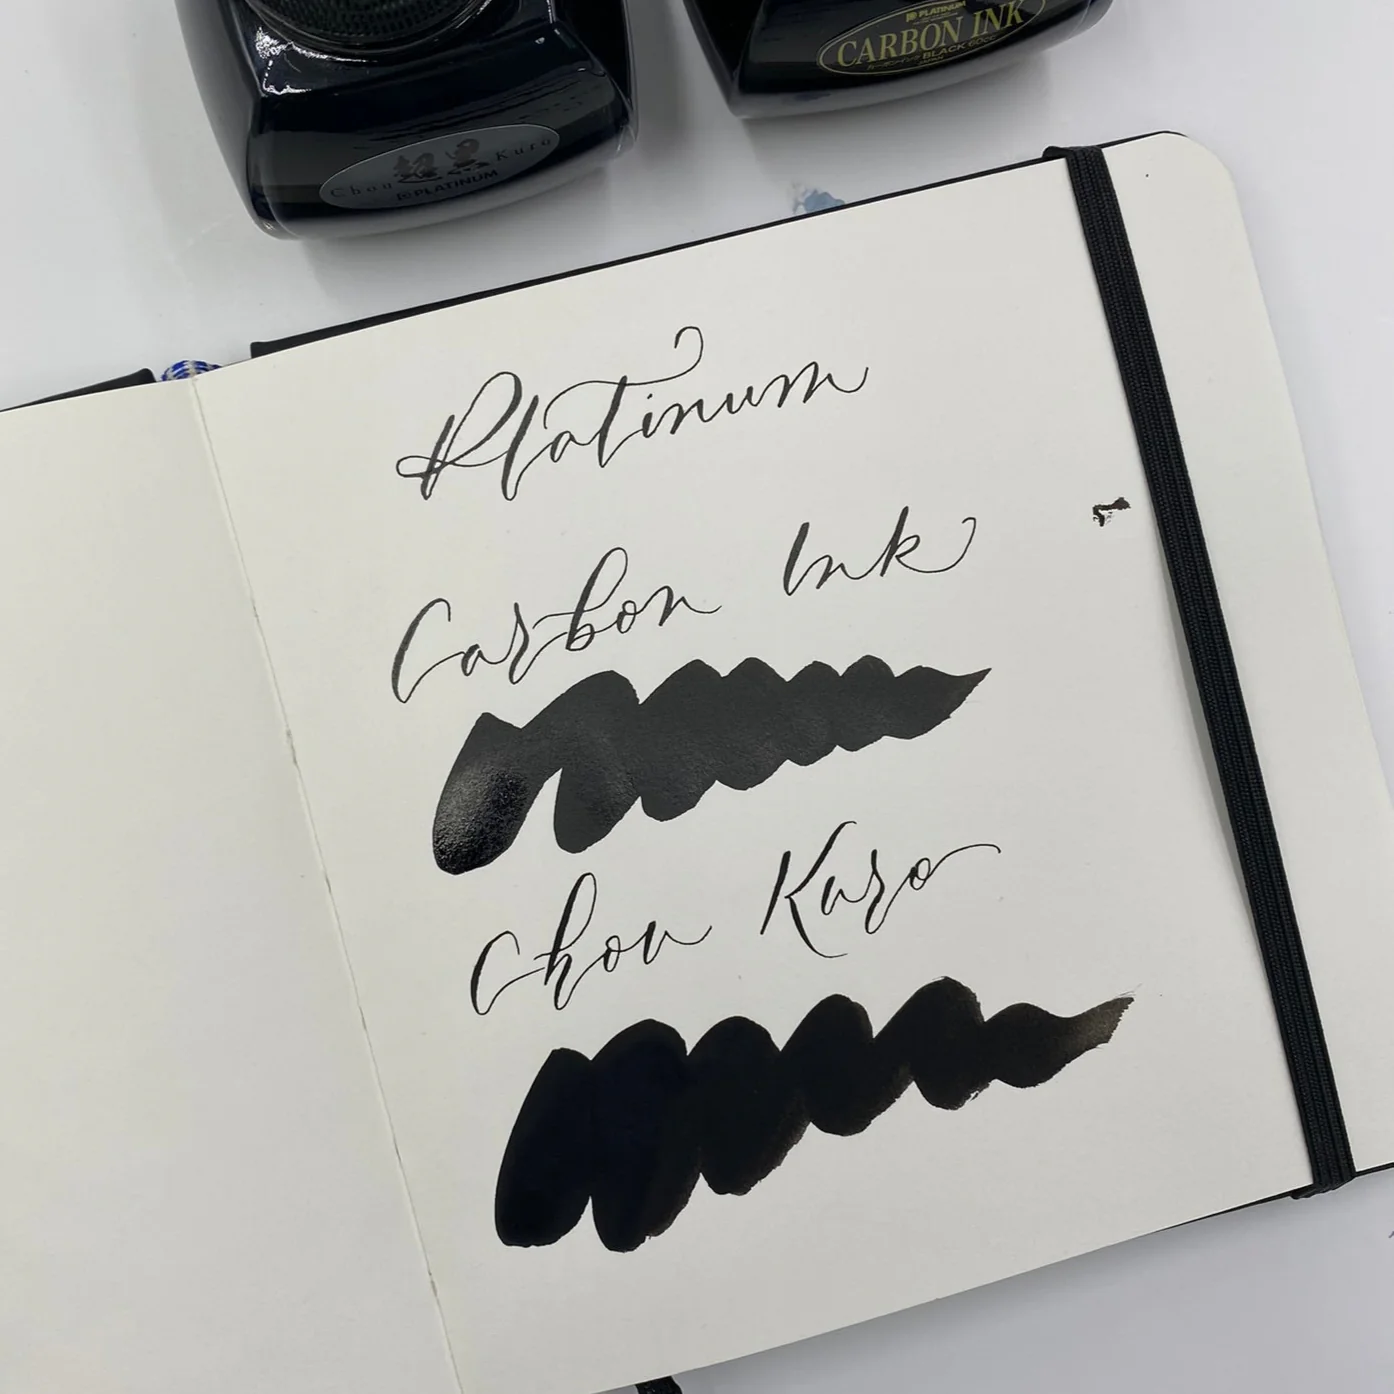 Chou 超黒 Kuro
PLATINUM
PLATINUM
CARBON INK
BLACK
Platinum
Carbon Ink
Chou Kuro